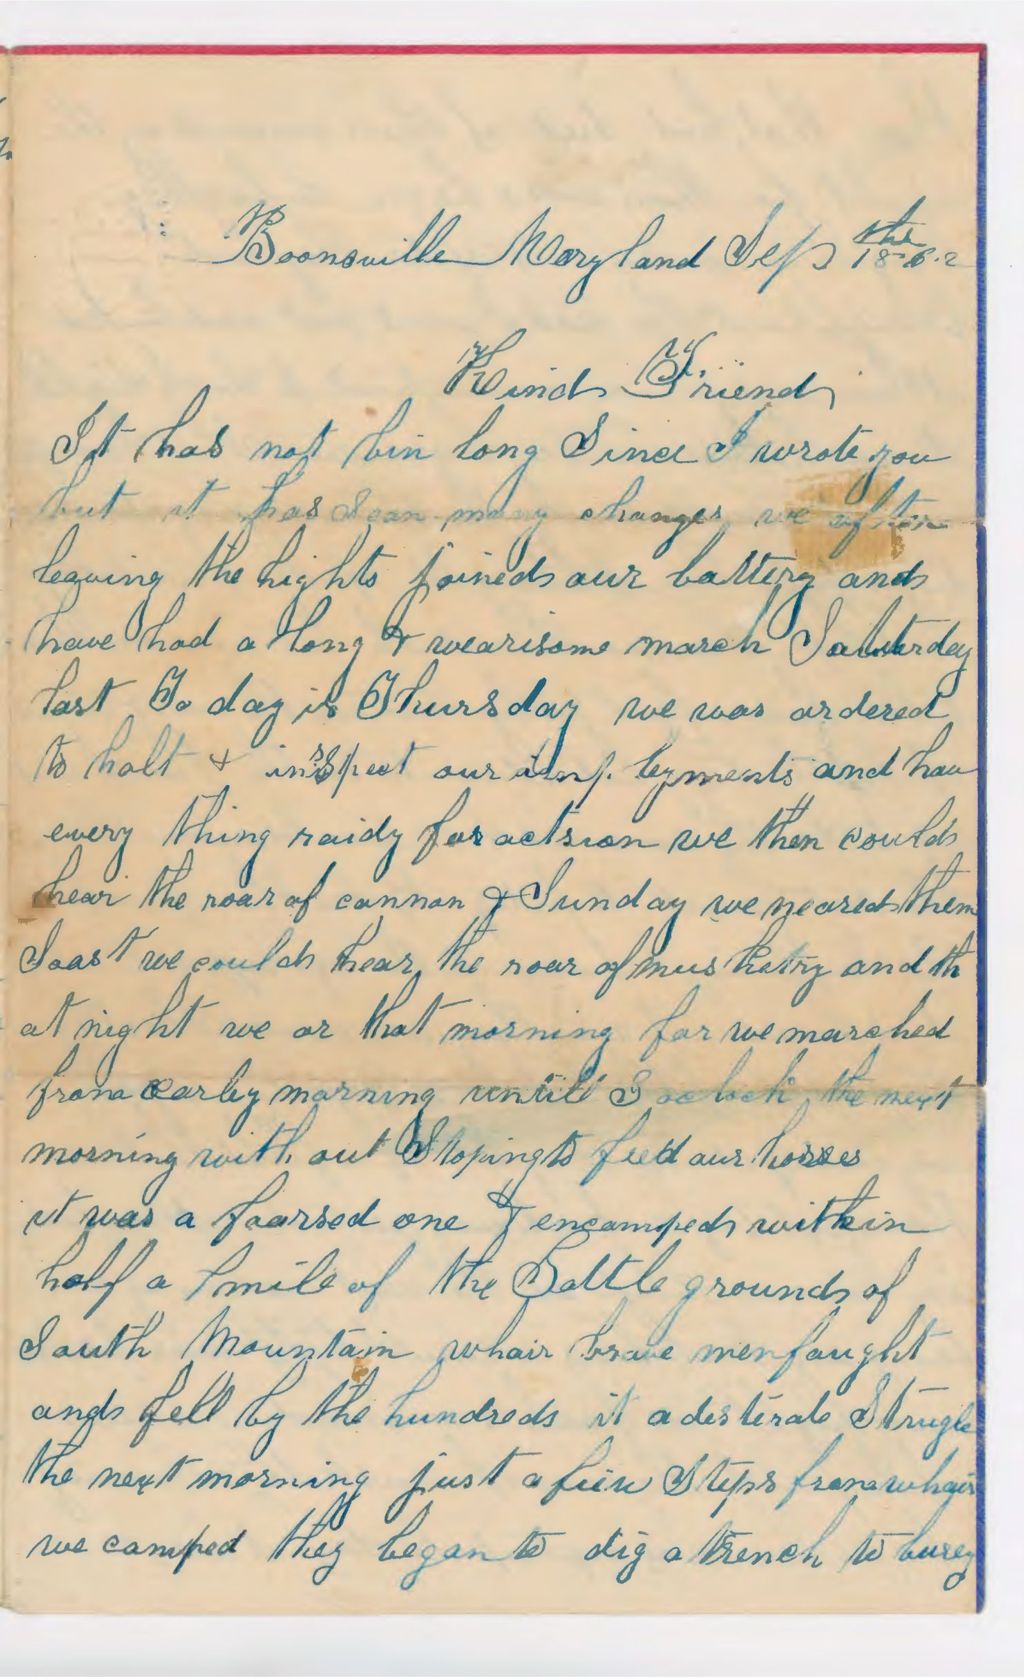 Boonsville Maryland Sep 18the 6.2
Kind Friend,
It has not bin long Since I wrote you
but it has Sean many changes we after
leaving the hights joined our battery and
have had a long & wearisome march Saturday
last To day is Thursday we was ordered
to halt & inspect our and hav
every thing raidy for actsion we then could
hear the roar of cannon & Sunday we neared them
Soast we could hear the roar of musketry and th
at night we or that morning for we marched
from earley morning untill 3 oclock the next
morning with out Stoping to feed our horses
it was a foarsed one & encamped within
half a mile of the Battle ground of
South Mountain whair brave men faught
and fell by the hundreds it a desterate Strugle
the next morning just a fiew Steps from whair
we camped they began to dig a trench to burey